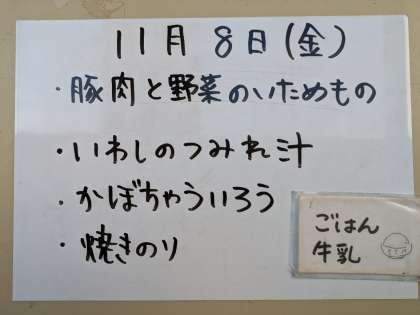 11月 8日(金)
・豚肉と野菜のいためもの
・いわしのつみれ汁
・かぼちゃういろう
・焼きのり
ごはん
牛乳